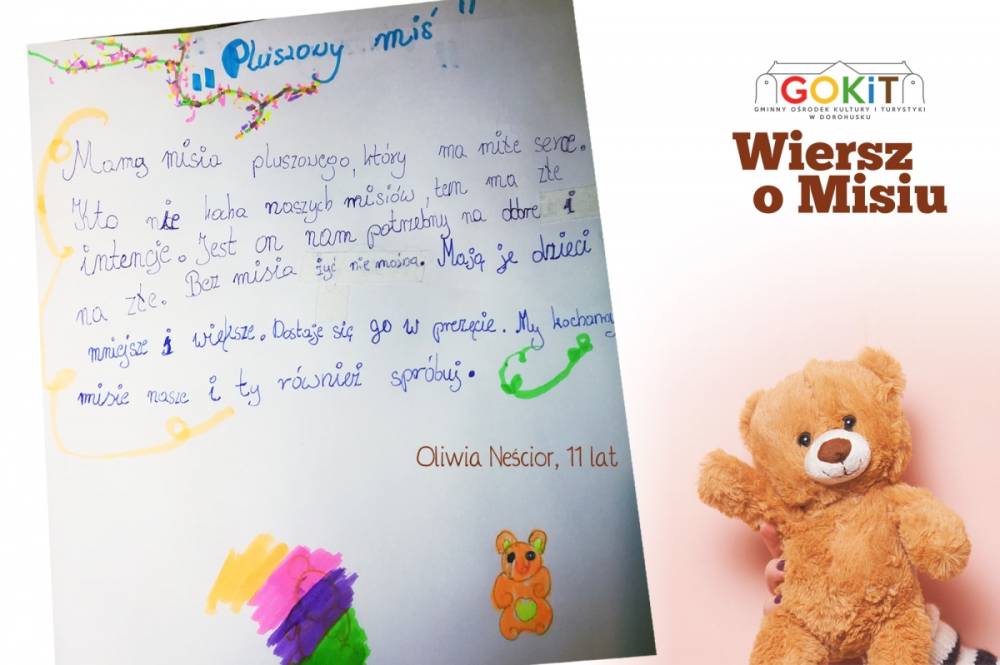 „Pluszowy miś"
Mamą misia pluszowego, który ma miłe serce.
Kto nie kocha naszych misiów, ten ma złe
intencje. Jest on nam potrzebny na dobre i
na złe. Bez misia żyć nie można. Mają je dzieci
mniejsze i większe. Dostaje się go w prezęcie. My kochamy
misie nasze i ty również spróbuj.
Oliwia Neścior, 11 lat
GOKiT
GMINNY OŚRODEK KULTURY I TURYSTYKI
W DOROHUSKU
Wiersz
o Misiu